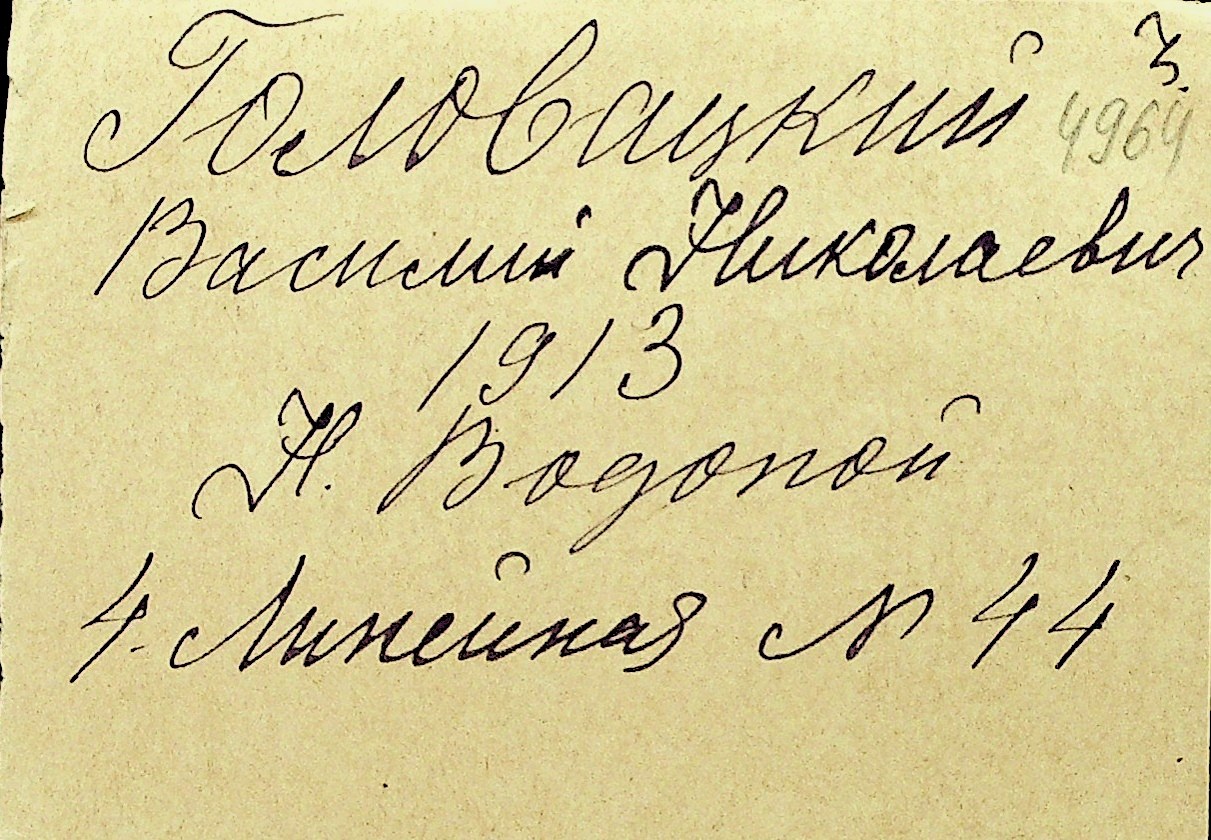 Головацкий З.
4964
Василий Николаевич
1913
Н. Водопой
4. Линейная N 44